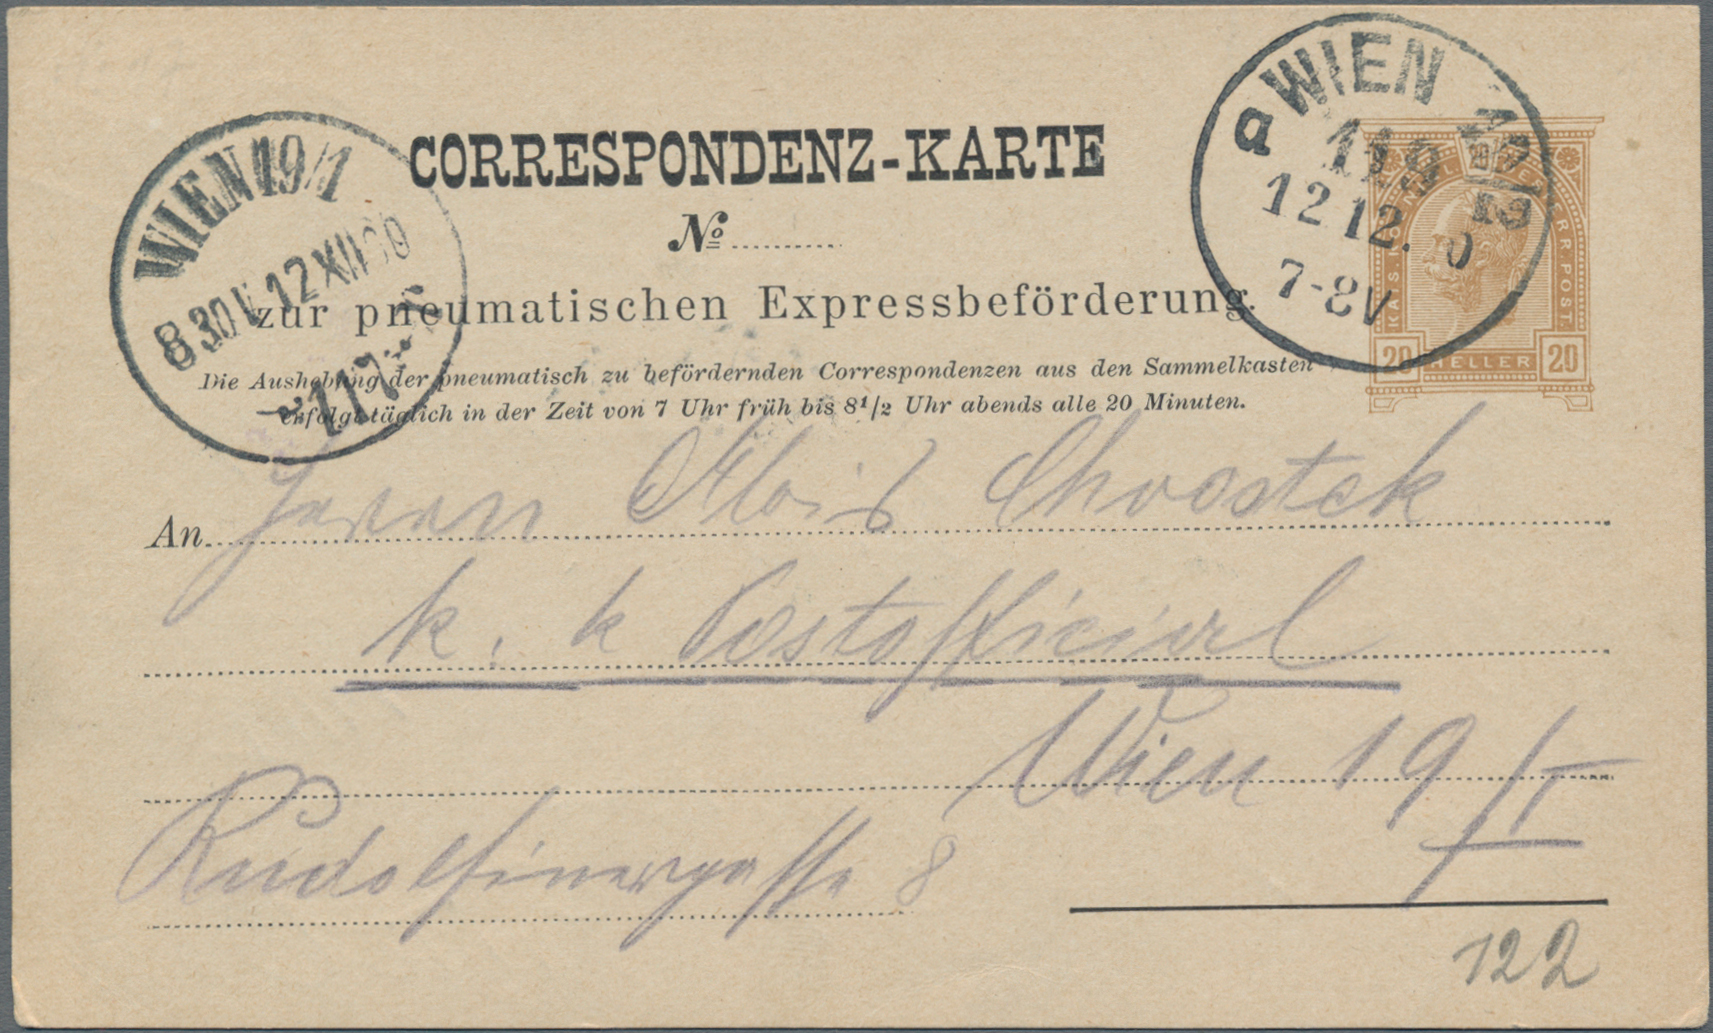 CORRESPONDENZ-KARTE
No
zur pneumatischen Expressbeförderung.
Die Aushebung der pneumatisch zu befördernden Correspondenzen aus den Sammelkasten
erfolgt täglich in der Zeit von 7 Uhr früh bis 8 1/2 Uhr abends alle 20 Minuten.
WIEN 19/1
8 30 V 12 XII 00
a WIEN
12 12. 0
7-8V
20 HELLER 20
An Herrn Alois Chvostek
k. k Postofficial
Wien 19/1
Rudolfinergasse 8
122